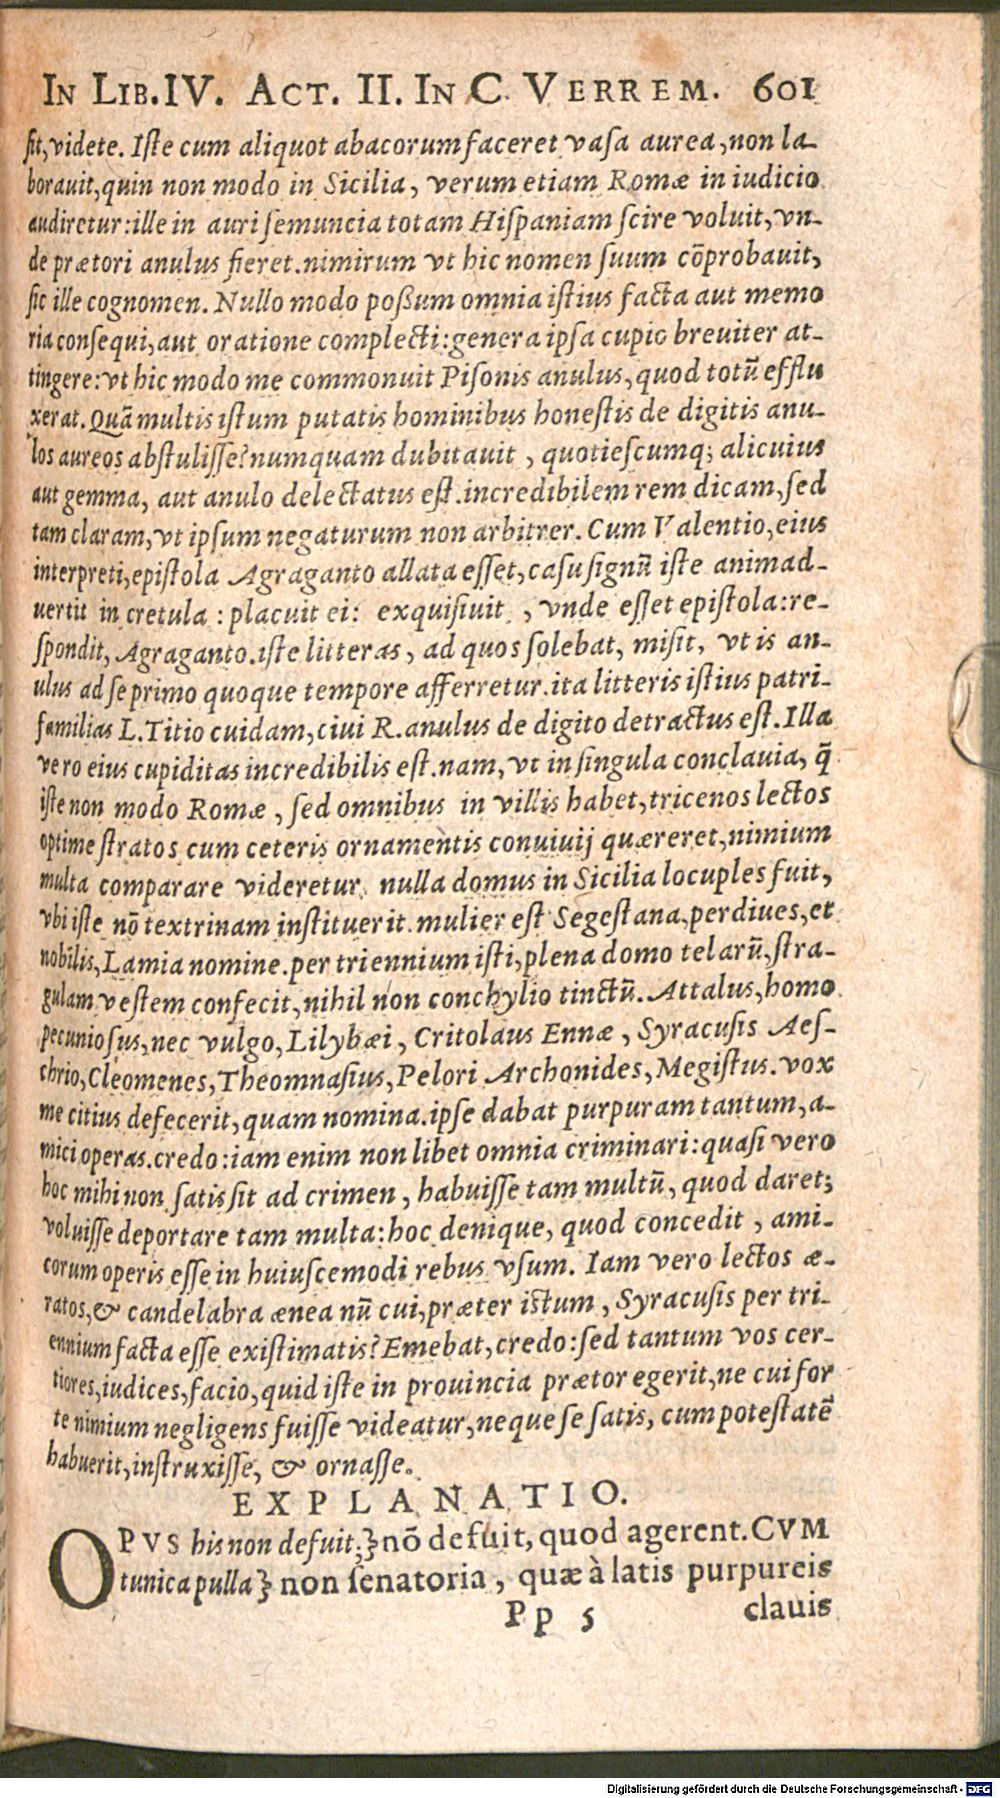 IN LIB. IV. ACT. II. IN C. VERREM. 601
ſit, videte. Iſte cum aliquot abacorum faceret vaſa aurea, non la-
borauit, quin non modo in Sicilia, verum etiam Romæ in iudicio
audiretur: ille in auri ſemuncia totam Hiſpaniam ſcire voluit, vn-
de prætori anulus fieret. nimirum vt hic nomen ſuum cõprobauit,
ſic ille cognomen. Nullo modo poßum omnia iſtius facta aut memo
ria conſequi, aut oratione complecti: genera ipſa cupio breuiter at-
tingere: vt hic modo me commonuit Piſonis anulus, quod totũ efflu
xerat. Quã multis iſtum putatis hominibus honeſtis de digitis anu-
los aureos abſtuliſſe? numquam dubitauit, quotieſcumq; alicuius
aut gemma, aut anulo delectatus eſt. incredibilem rem dicam, ſed
tam claram, vt ipſum negaturum non arbitrer. Cum Valentio, eius
interpreti, epiſtola Agraganto allata eſſet, caſu ſignũ iſte animad-
uertit in cretula: placuit ei: exquiſiuit, vnde eſſet epiſtola: re-
ſpondit, Agraganto. iſte litteras, ad quos ſolebat, miſit, vt is an-
ulus ad ſe primo quoque tempore afferretur. ita litteris iſtius patri-
familias L. Titio cuidam, ciui R. anulus de digito detractus eſt. Illa
vero eius cupiditas incredibilis eſt. nam, vt in ſingula conclauia, q̃
iſte non modo Romæ, ſed omnibus in villis habet, tricenos lectos
optime ſtratos cum ceteris ornamentis conuiuij quæreret, nimium
multa comparare videretur. nulla domus in Sicilia locuples fuit,
vbi iſte nõ textrinam inſtituerit. mulier eſt Segeſtana, perdiues, et
nobilis, Lamia nomine. per triennium iſti, plena domo telarũ, ſtra-
gulam veſtem confecit, nihil non conchylio tinctũ. Attalus, homo
pecunioſus, nec vulgo, Lilybæi, Critolaus Ennæ, Syracuſis Aeſ-
chrio, Cleomenes, Theomnaſius, Pelori Archonides, Megiſtus. vox
me citius defecerit, quam nomina. ipſe dabat purpuram tantum, a-
mici operas. credo: iam enim non libet omnia criminari: quaſi vero
hoc mihi non ſatis ſit ad crimen, habuiſſe tam multũ, quod daret;
voluiſſe deportare tam multa: hoc denique, quod concedit, ami-
corum operis eſſe in huiuſcemodi rebus vſum. Iam vero lectos æ-
ratos, & candelabra ænea nũ cui, præter iſtum, Syracuſis per tri-
ennium facta eſſe exiſtimatis? Emebat, credo: ſed tantum vos cer-
tiores, iudices, facio, quid iſte in prouincia prætor egerit, ne cui for
te nimium negligens fuiſſe videatur, neque ſe ſatis, cum poteſtatẽ
habuerit, inſtruxiſſe, & ornaſſe.
EXPLANATIO.
OPVS his non defuit;] nõ defuit, quod agerent. CVM
tunica pulla] non ſenatoria, quæ à latis purpureis
Pp 5 clauis
Digitalisierung gefördert durch die Deutsche Forschungsgemeinschaft - DFG